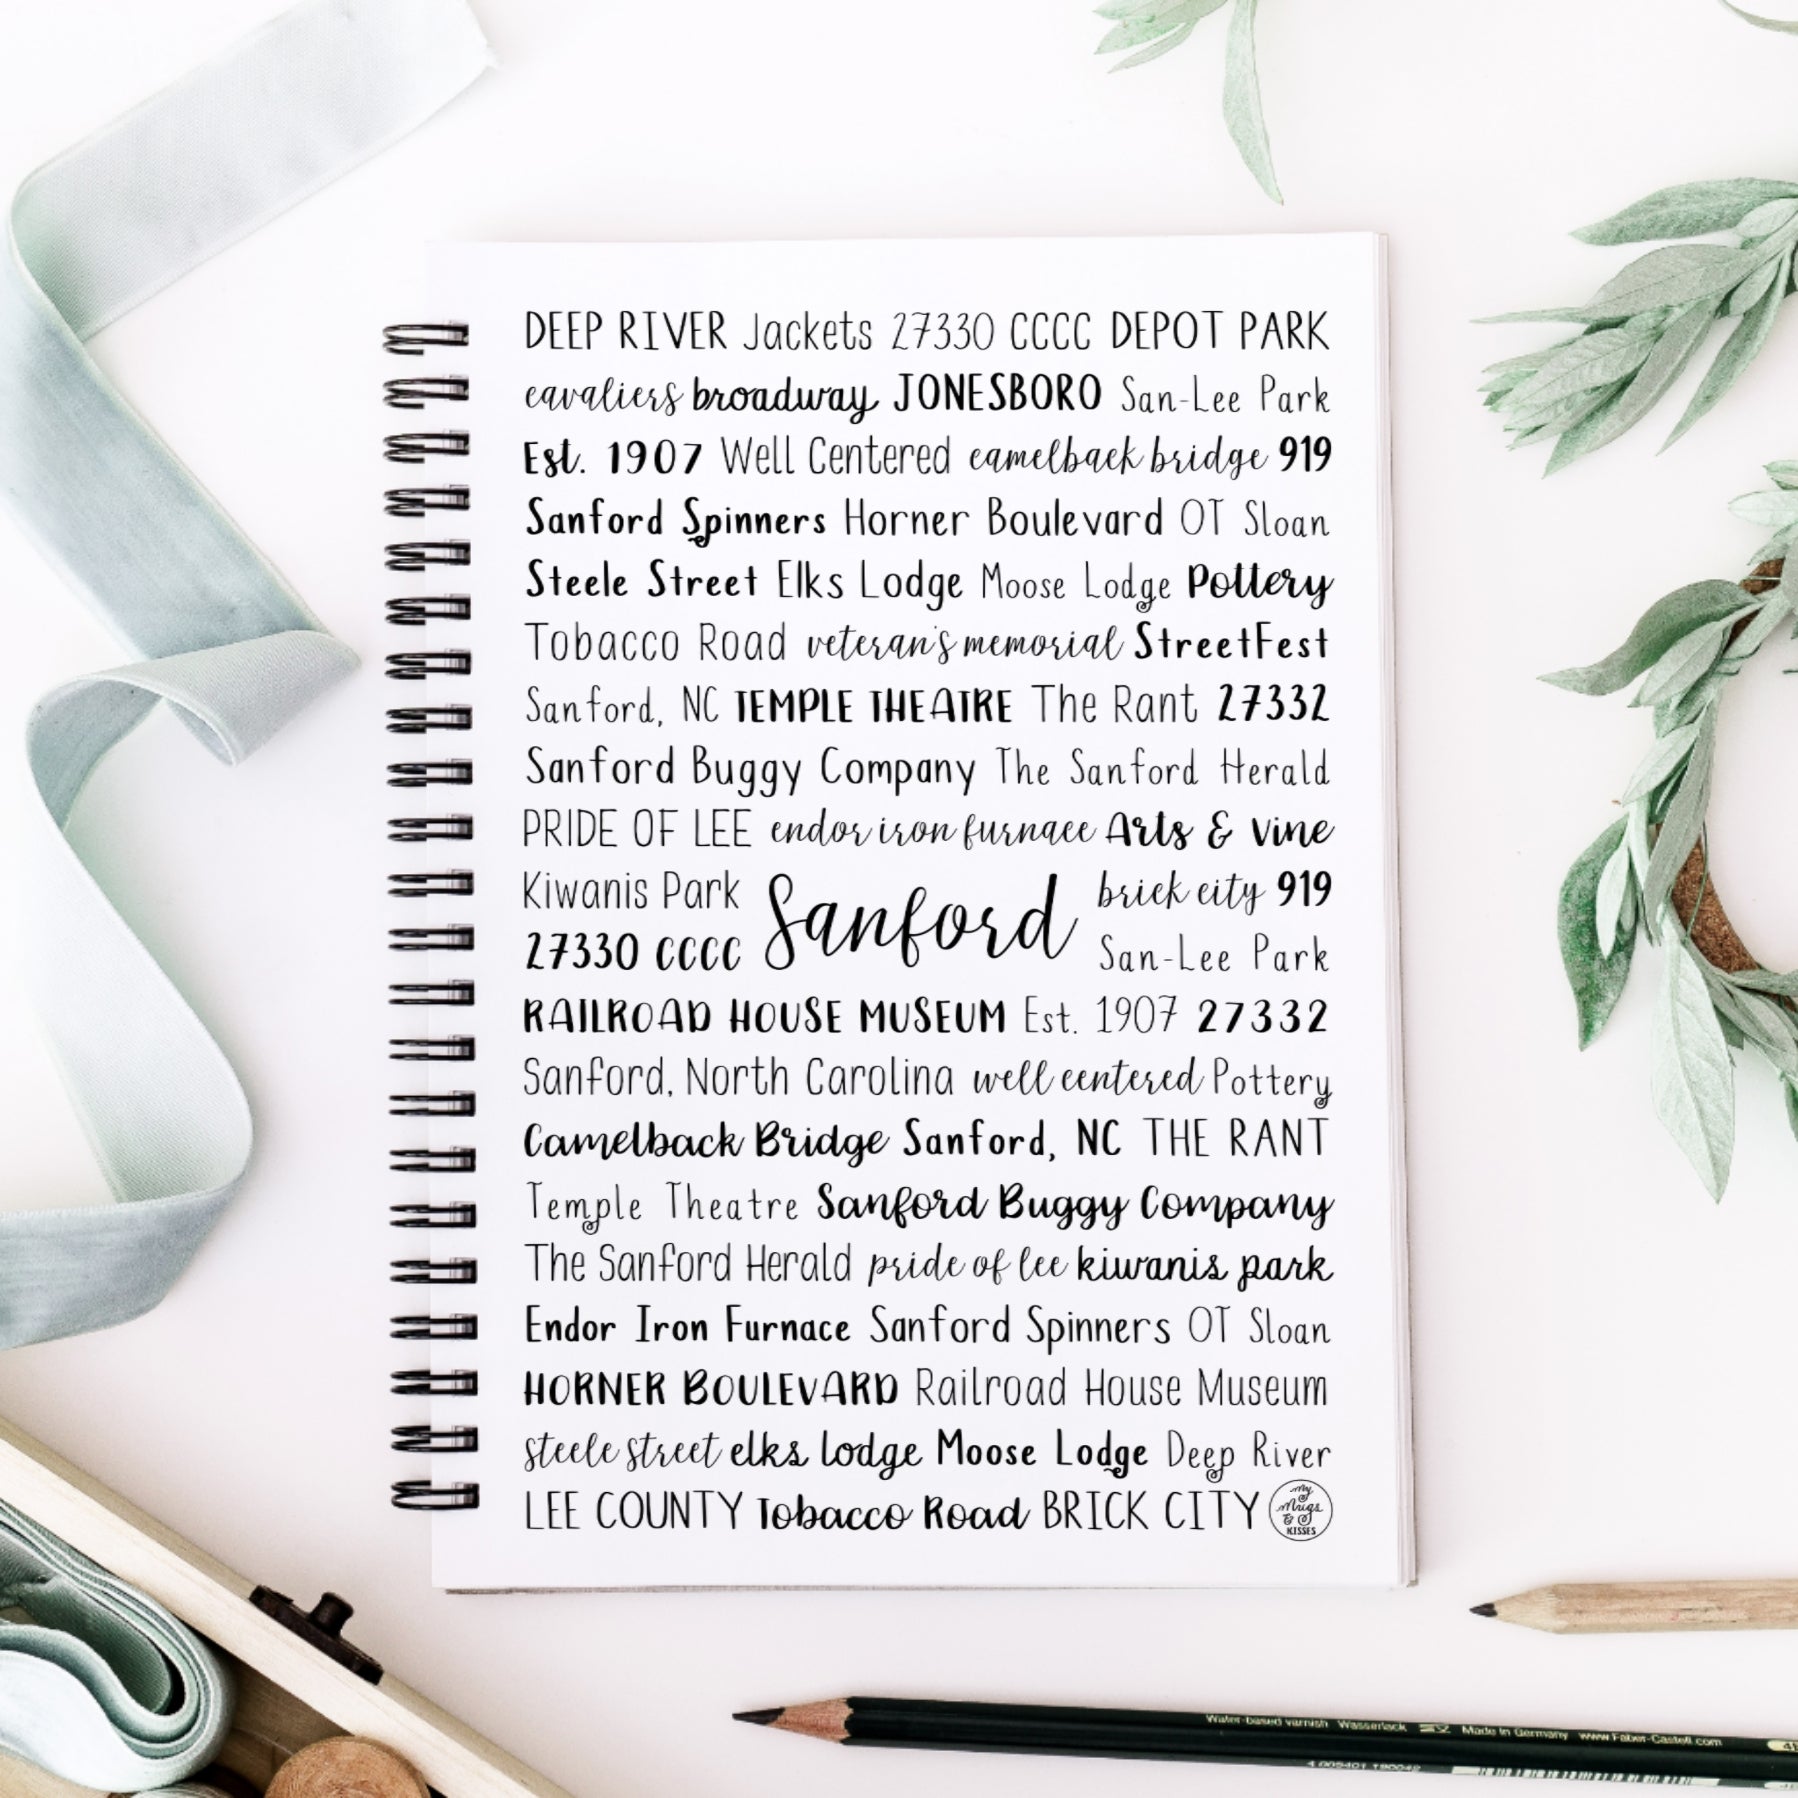 DEEP RIVER Jackets 27330 CCCC DEPOT PARK
cavaliers broadway JONESBORO San-Lee Park
Est. 1907 Well Centered camelback bridge 919
Sanford Spinners Horner Boulevard OT Sloan
Steele Street Elks Lodge Moose Lodge Pottery
Tobacco Road veteran's memorial StreetFest
Sanford, NC TEMPLE THEATRE The Rant 27332
Sanford Buggy Company The Sanford Herald
PRIDE OF LEE endor iron furnace Arts & Vine
Kiwanis Park brick city 919
Sanford
27330 CCCC San-Lee Park
RAILROAD HOUSE MUSEUM Est. 1907 27332
Sanford, North Carolina well centered Pottery
Camelback Bridge Sanford, NC THE RANT
Temple Theatre Sanford Buggy Company
The Sanford Herald pride of lee kiwanis park
Endor Iron Furnace Sanford Spinners OT Sloan
HORNER BOULEVARD Railroad House Museum
steele street elks lodge Moose Lodge Deep River
LEE COUNTY Tobacco Road BRICK CITY
My
Mugs
&
KISSES
Water-based varnish Wasserlack Made in Germany www.Faber-Castell.com
4 005401 190042